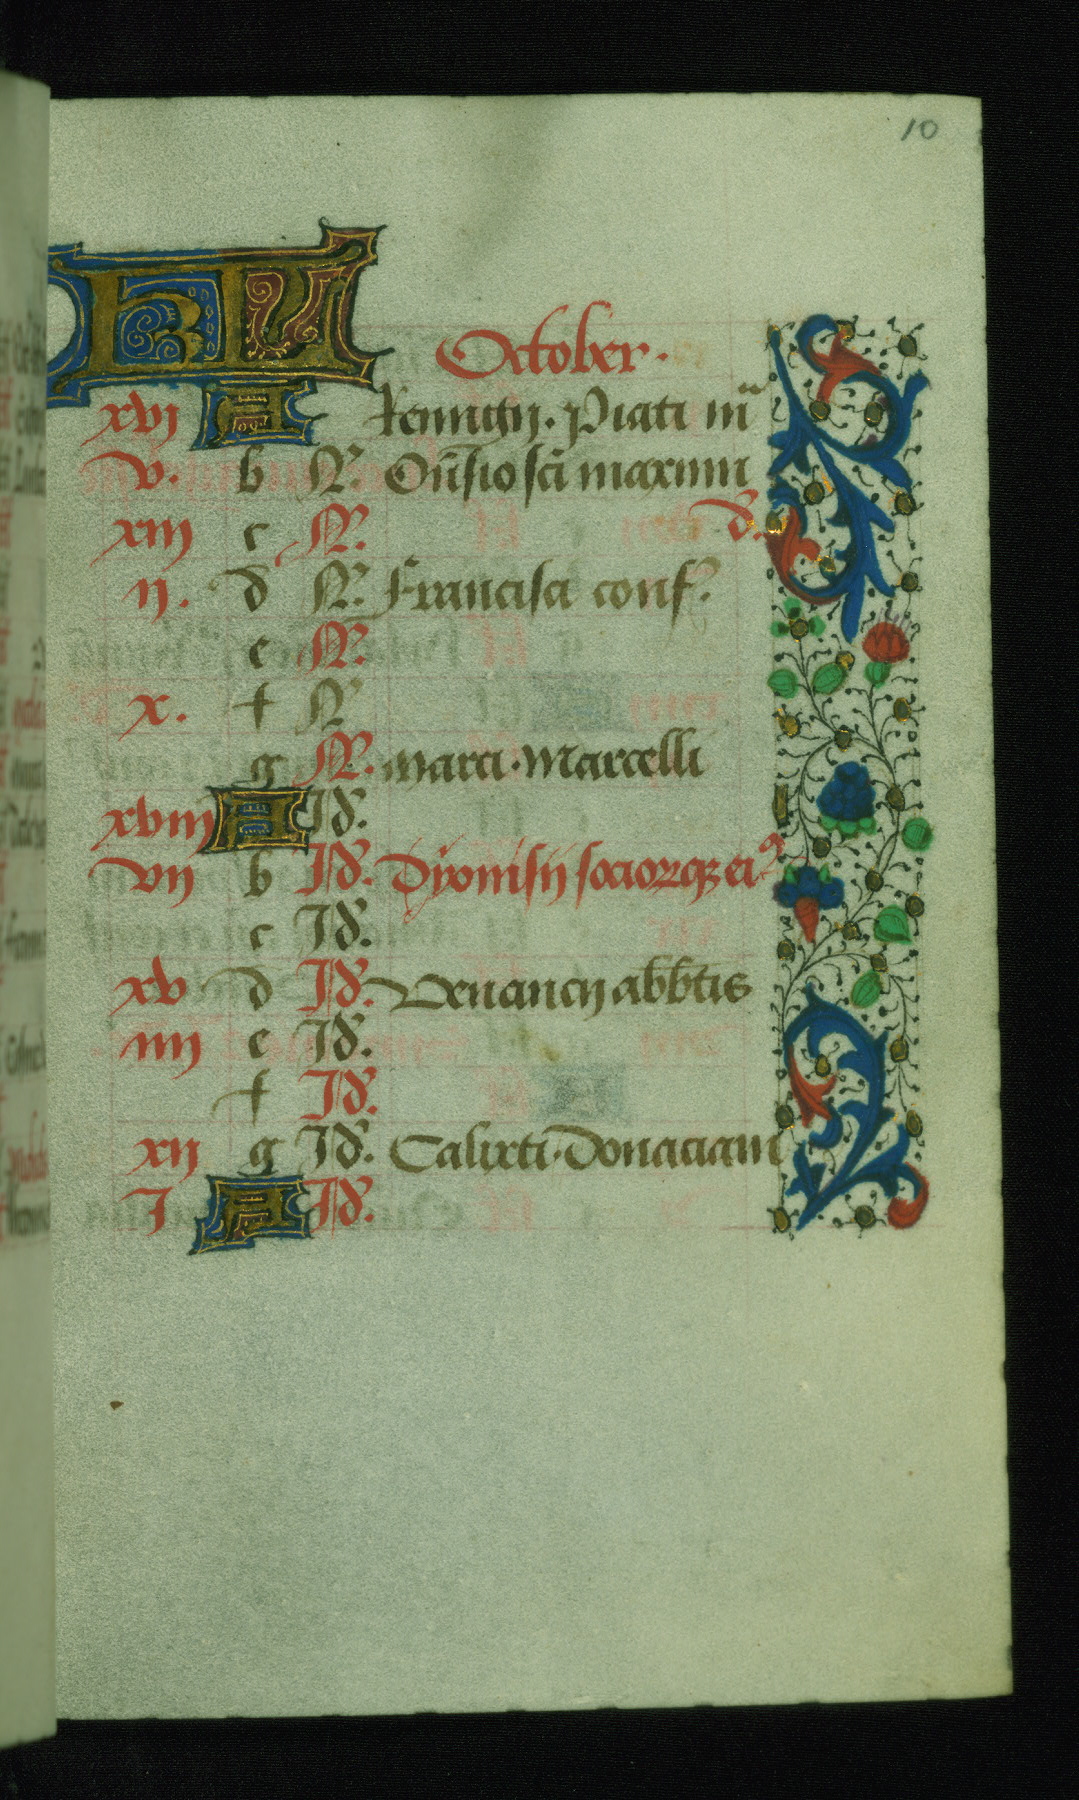 10
KL October.
xvj A Remigij. Piati m̄
v. b N. Oñsio sc̄i maximi
xiij c N. d.
ij. d N. Francisci conf.
e N.
x. f N
g N. Marci. Marcelli
xviij A Id.
vij b Id. Dyonisij sociorqz ei9
c Id.
xv d Id. Venancij abbtis
iiij e Id.
f Id.
xij g Id. Calixti. Donaciani
I A Id.